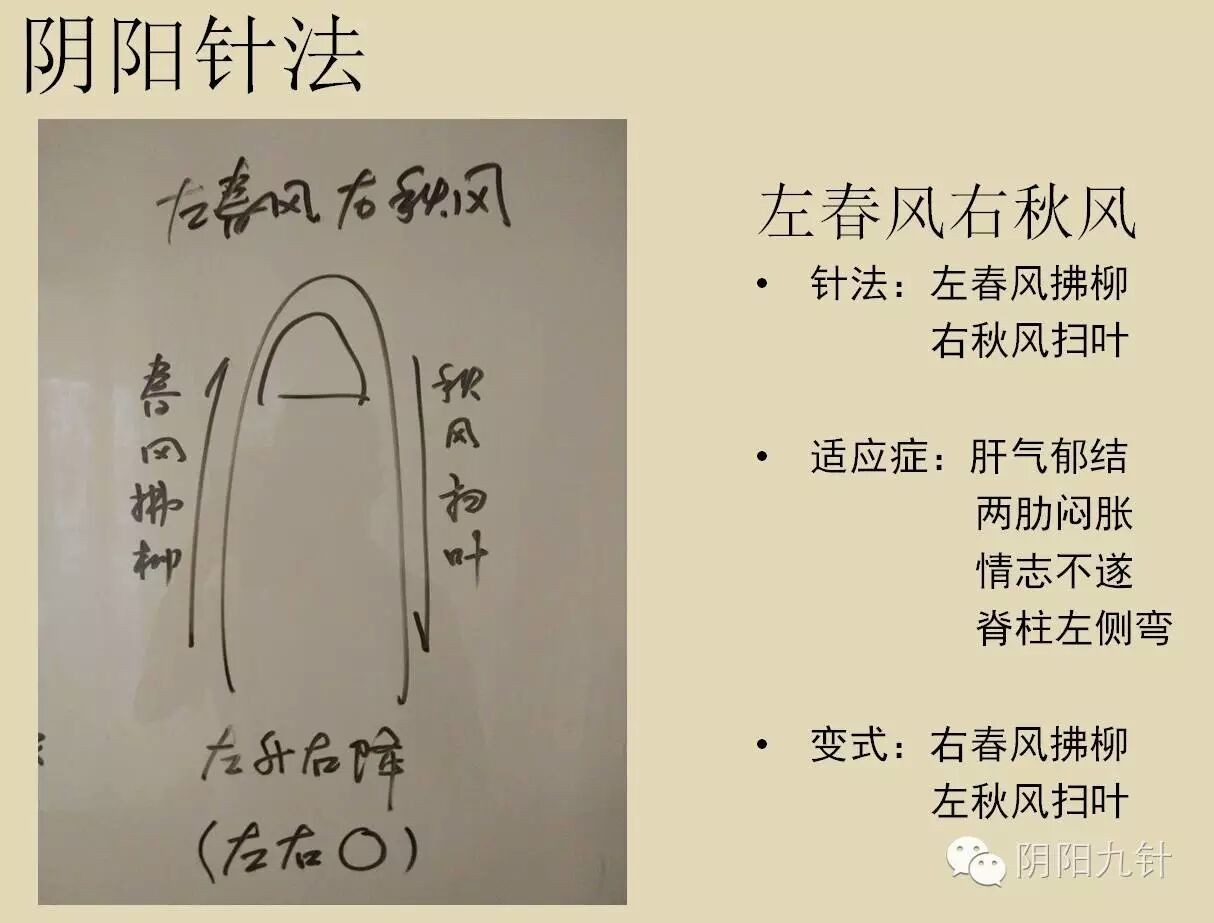 阴阳针法
左春风右秋风
春风拂柳
秋风扫叶
左升右降
(左右〇)
左春风右秋风
• 针法：左春风拂柳
右秋风扫叶
• 适应症：肝气郁结
两肋闷胀
情志不遂
脊柱左侧弯
• 变式：右春风拂柳
左秋风扫叶
阴阳九针